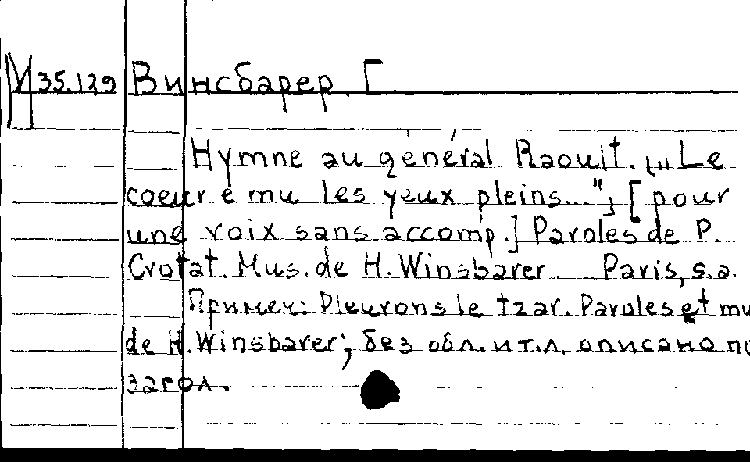 М 35.129 Винсбарер Г
Hymne au général Raoult. („Le
coeur é mu les yeux pleins..."; [pour
une voix sans accomp.] Paroles de P.
Crotat. Mus. de H. Winsbarer Paris, s.a.
Примеч: Pleurons le tzar. Paroles et mu
de H. Winsbarer; без обл. и т.л, описано по
загол.